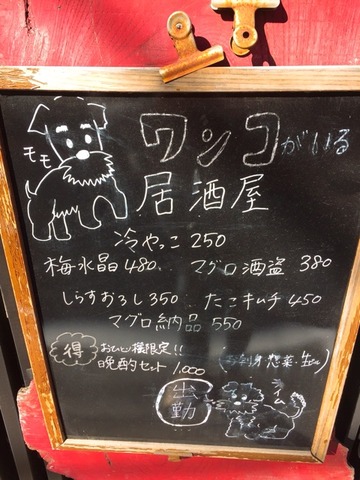 ワンコがいる
モモ
居酒屋
冷やっこ 250
梅水晶 480 マグロ酒盗 380
しらすおろし 350 たこキムチ 450
マグロ納品 550
得 おひとり様限定!!
晩酌セット 1,000 (お刺身 惣菜 生ビール)
出勤
ライム